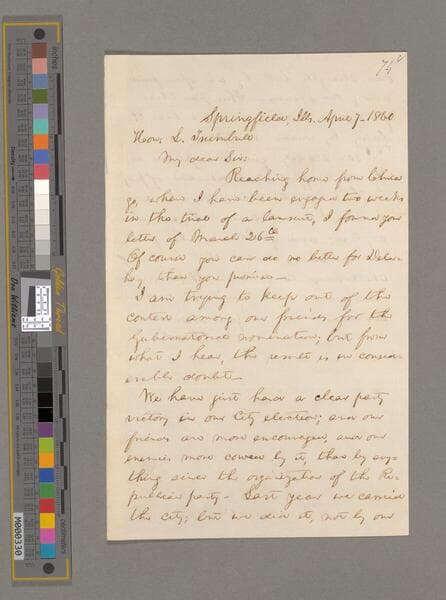 74
Springfield, Ills. April 7- 1860
Hon: L. Trumbull
My dear Sir:
Reaching home from Chica-
go, where I have been engaged two weeks
in the trial of a lawsuit, I found your
letter of March 26th
Of course you can do no better for Delahay
than you promise-
I am trying to keep out of the
contest among our friends for the
Gubernatorial nomination; but from
what I hear, the result is in consid-
erable doubt-
We have just had a clear party
victory in our City election; and our
friends are more encouraged, and our
enemies more cowed by it, than by any-
thing since the organization of the Re-
publican party- Last year we carried
the city; but we did it, not by our
inches
centimeters
Density
Golden Thread
M000330